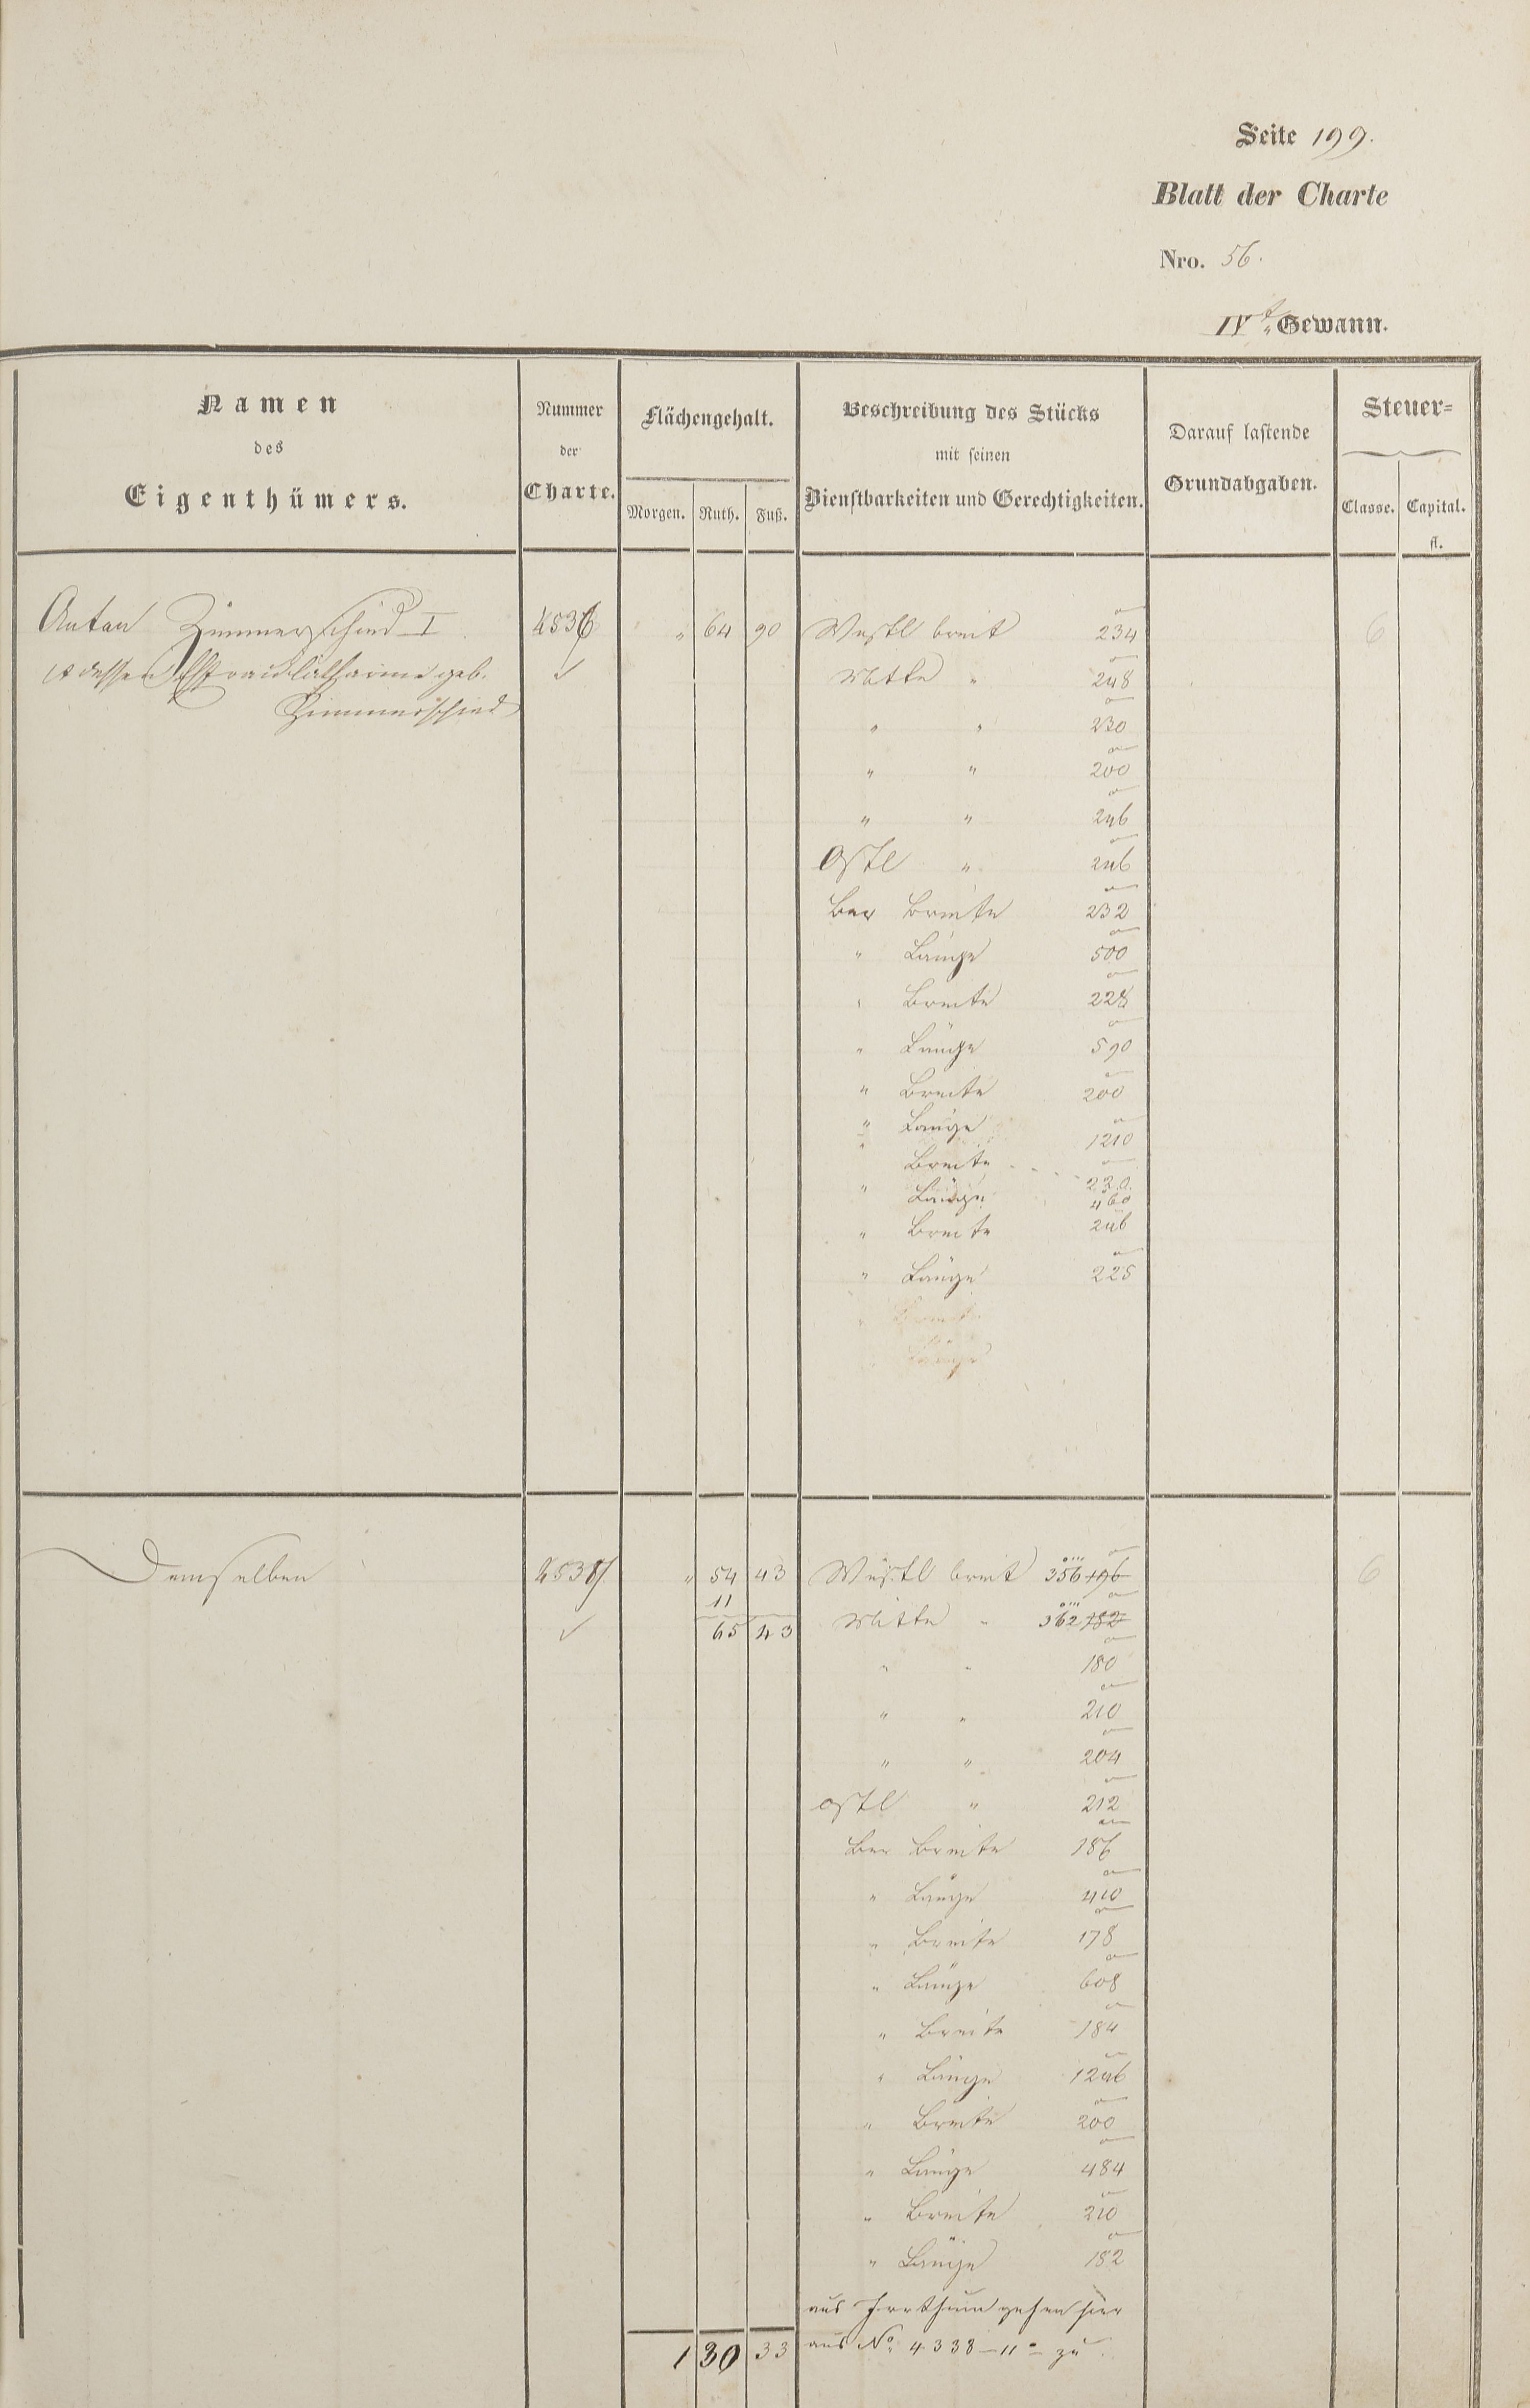 Seite 199.
Blatt der Charte
Nro. 56.
IVt Gewann.
Namen
des
Eigenthümers.
Nummer
der
Charte.
Flächengehalt.
Morgen. Ruth. Fuß.
Beschreibung des Stücks
mit seinen
Dienstbarkeiten und Gerechtigkeiten.
Darauf lastende
Grundabgaben.
Steuer=
Classe. Capital.
fl.
Anton Zimmerschied I. 4536 " 64 90 Westl breit 234 6
& dessen Ehefrau Catharine geb. Mitte " 248
Zimmerschied
" " 230
" " 200
" " 246
Ostl " 246
Ber Breite 232
" Länge 500
" Breite 228
" Länge 590
" Breite 200
" Länge 1210
" Breite 230
" Länge 460
" Breite 246
" Länge 225
Breite
Länge
Demselben 4537 " 54 43 Westl breit 356 196 6
11
65 43 Mitte " 362 182
" " 180
" " 210
" " 204
ostl " 212
Ber Breite 186
" Länge 410
" Breite 178
" Länge 608
" Breite 184
" Länge 1246
" Breite 200
" Länge 484
" Breite 210
" Länge 182
aus Irrthum gehen hier
1 30 33 aus No. 4338 – 11° zu.